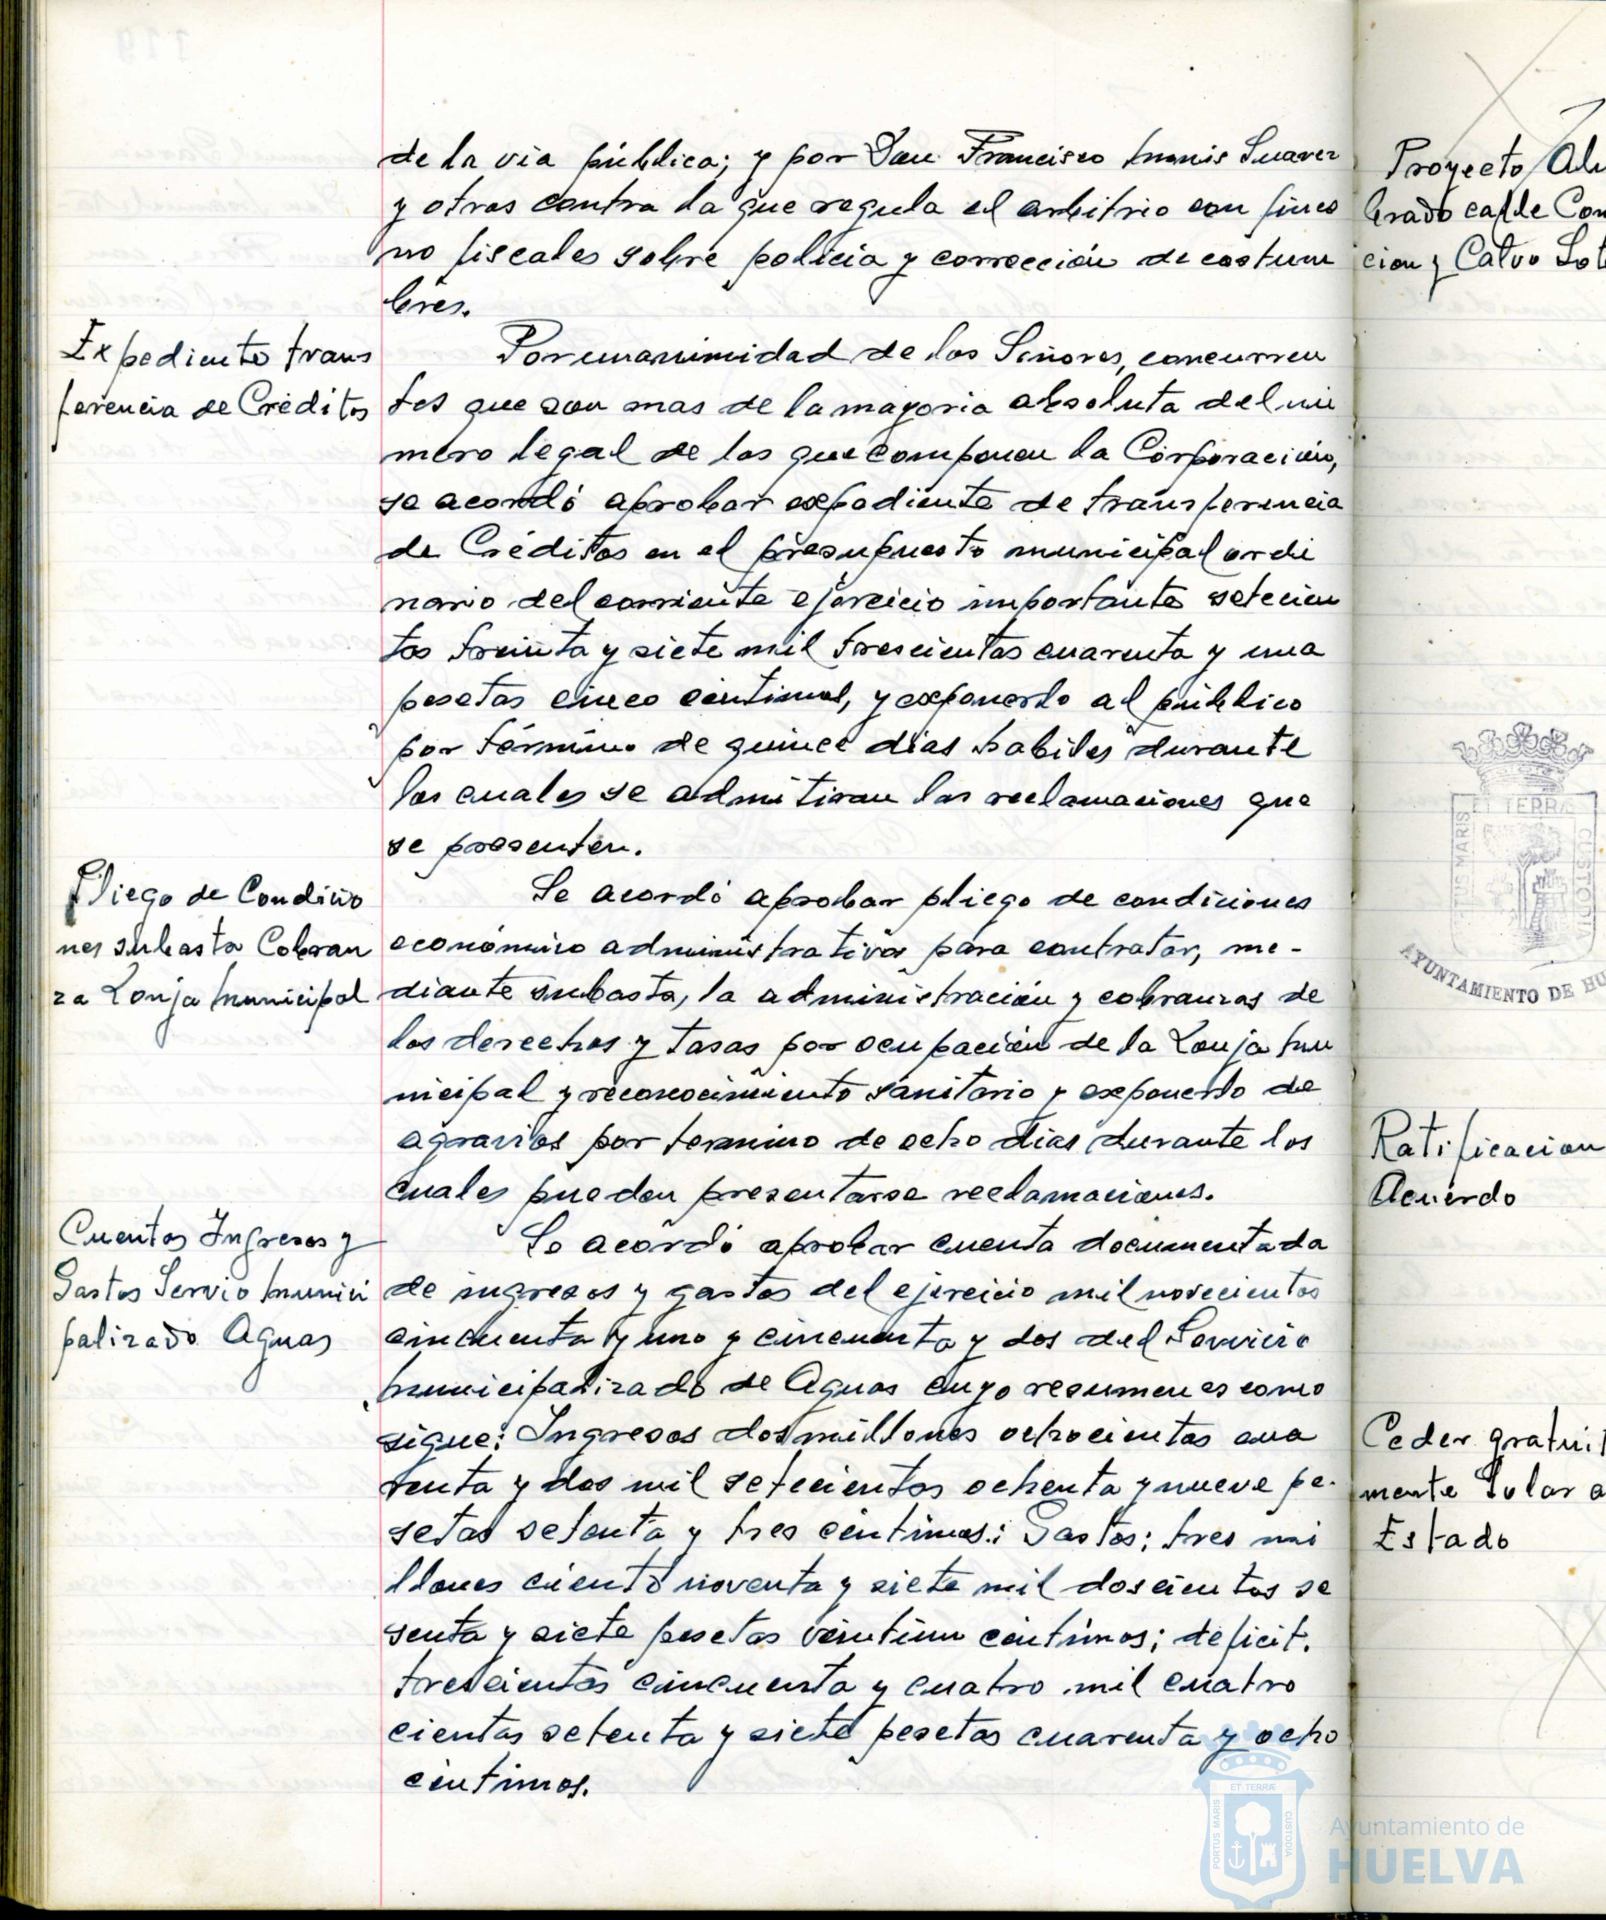 de la via pública; y por Don Francisco Suarez
y otros contra la que regula el arbitrio con fines
no fiscales sobre policia y corrección de costum
bres.
Expediente trans
ferencia de Créditos
Por unanimidad de los Señores, concurren
tes que son mas de la mayoria absoluta del nú
mero legal de los que componen la Corporación,
se acordó aprobar expediente de transferencia
de Créditos en el presupuesto municipal ordi
nario del corriente ejercicio importante setecien
tos treinta y siete mil trescientas cuarenta y una
pesetas cinco centimos, y exponerlo al público
por término de quince dias habiles durante
los cuales se admitiran las reclamaciones que
se presenten.
Pliego de Condicio
nes subasta Cobran
za Lonja municipal
Se acordó aprobar pliego de condiciones
económico administrativas para contratar, me-
diante subasta, la administración y cobranzas de
los derechos y tasas por ocupación de la Lonja mu
nicipal y reconocimiento sanitario y exponerlo de
agravios por termino de ocho dias durante los
cuales pueden presentarse reclamaciones.
Cuentas Ingresos y
Gastos Servio munici
palizado Aguas
Se acordó aprobar cuenta documentada
de ingresos y gastos del ejercicio mil novecientos
cincuenta y uno y cincuenta y dos del Servicio
municipalizado de Aguas cuyo resumen es como
sigue: Ingresos dos millones ochocientas cua
renta y dos mil setecientos ochenta y nueve pe-
setas setenta y tres céntimos.: Gastos: tres mi
llones ciento noventa y siete mil doscientos se
senta y siete pesetas veintiun céntimos; deficit.
trescientas cincuenta y cuatro mil cuatro
cientas setenta y siete pesetas cuarenta y ocho
céntimos.
Proyecto Alu
brado calle Con
cion y Calvo Sot
ET TERRÆ
CUSTODIA
AYUNTAMIENTO DE HU
Ratificacion
Acuerdo
Ceder gratuit
mente Solar a
Estado
ET TERRÆ
PORTUS MARIS
CUSTODIA
Ayuntamiento de
HUELVA